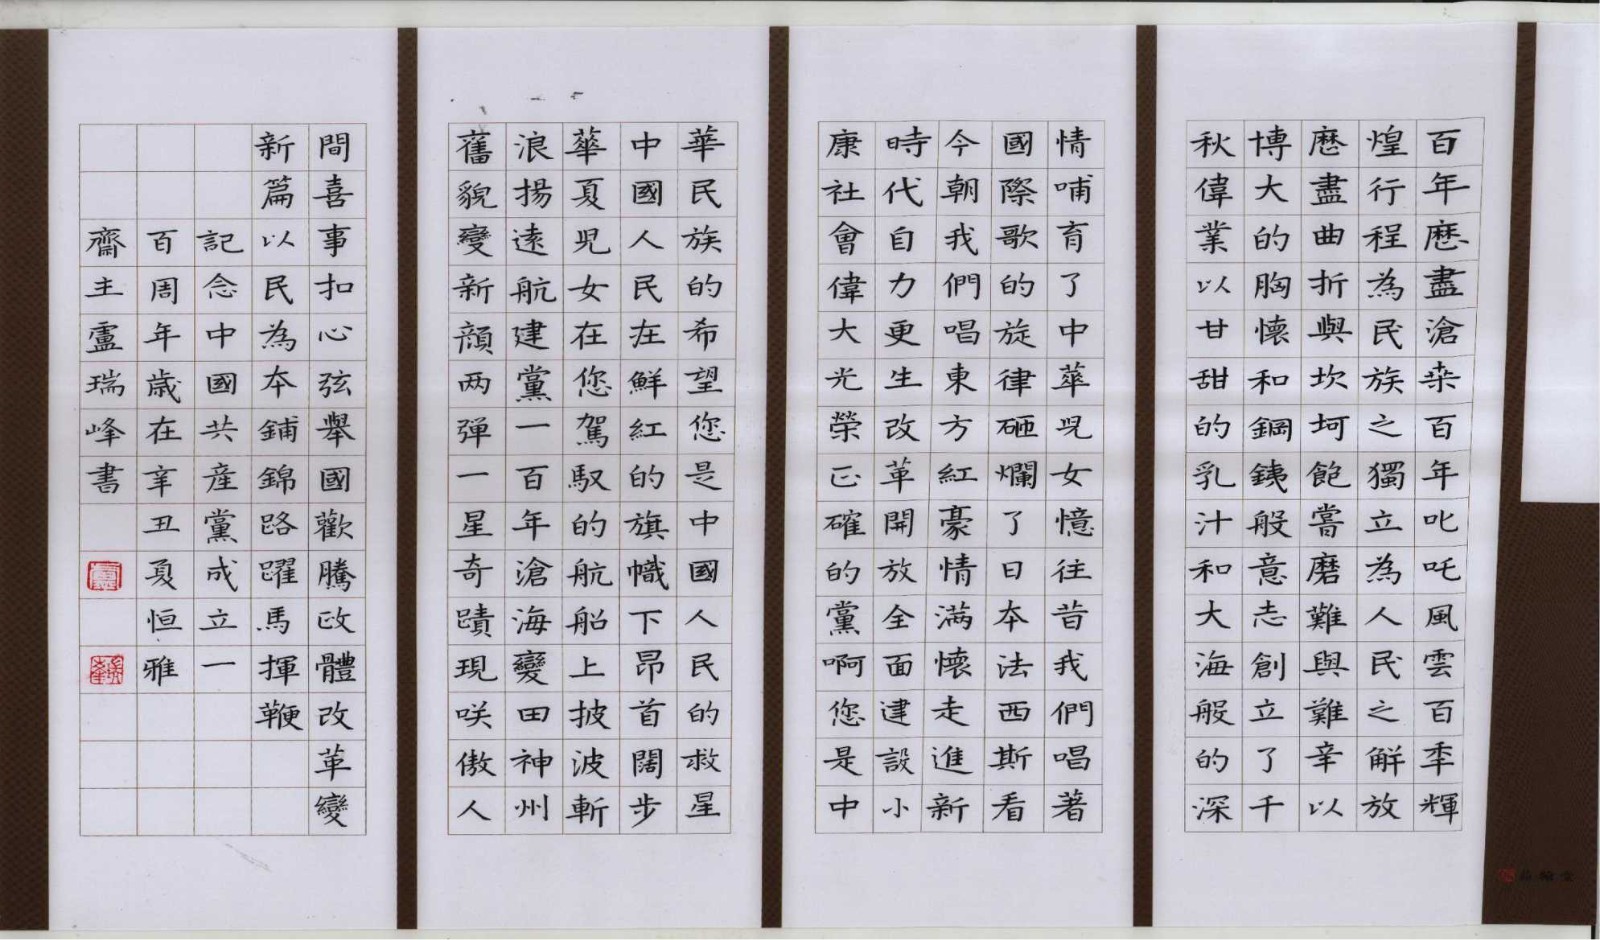 百年歷盡滄桒百年叱吒風雲百秊輝
煌行程為民族之獨立為人民之解放
歷盡曲折與坎坷飽嘗磨難與艱辛以
博大的胸懷和鋼銕般意志創立了千
秋偉業以甘甜的乳汁和大海般的深
情哺育了中華児女憶往昔我們唱著
國際歌的旋律砸爛了日夲法西斯看
今朝我們唱東方紅豪情滿懷走進新
時代自力更生改革開放全面建設小
康社會偉大光榮正確的黨啊您是中
華民族的希望您是中國人民的救星
中國人民在鮮紅的旗幟下昂首闊步
華夏児女在您駕馭的航船上披波斬
浪揚遠航建黨一百年滄海變田神州
舊貌變新顔两彈一星奇蹟現咲傲人
間喜事扣心弦舉國歡騰政體改革變
新篇以民為夲鋪錦路躍馬揮鞭
記念中國共産黨成立一
百周年歲在辛丑夏恒雅
齋主盧瑞峰書